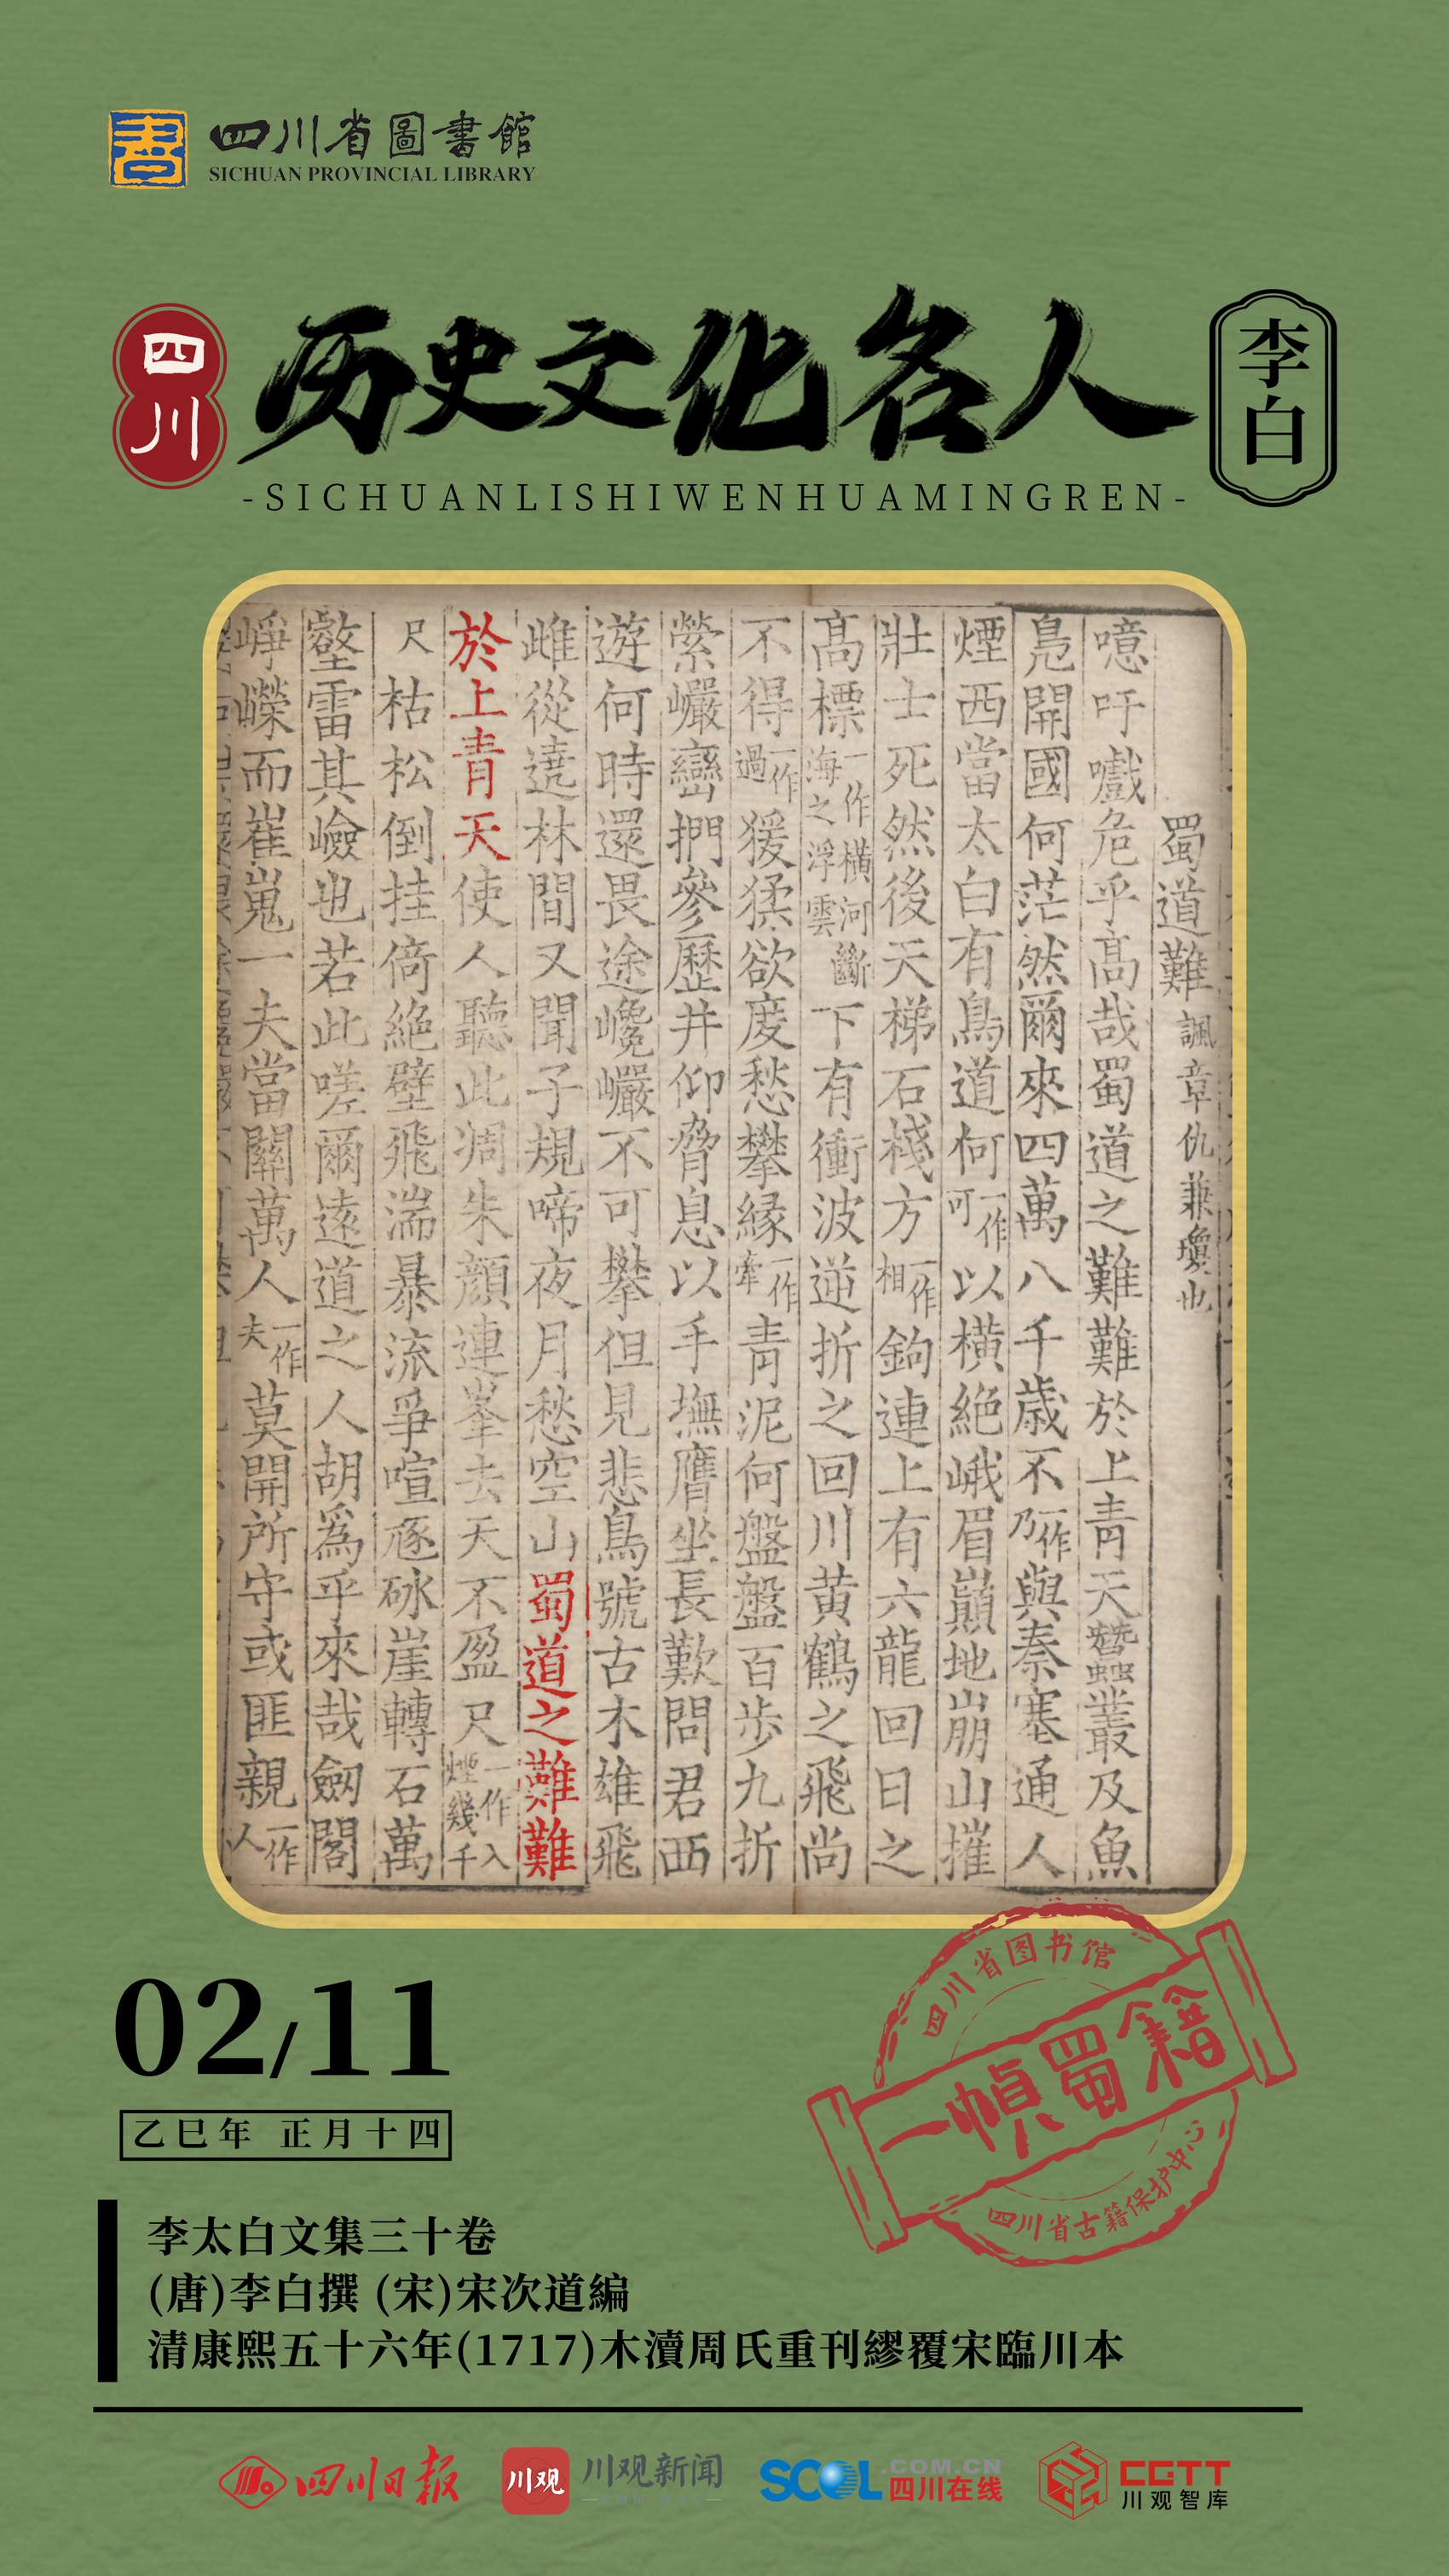 四川省圖書館
SICHUAN PROVINCIAL LIBRARY
四川
历史文化名人
李白
-SICHUANLISHIWENHUAMINGREN-
蜀道難 諷章仇兼瓊也
噫吁嚱危乎高哉蜀道之難難於上青天蠶叢及魚
鳧開國何茫然爾來四萬八千歲不一作乃與秦塞通人
煙西當太白有鳥道何一作可以橫絕峨眉巔地崩山摧
壯士死然後天梯石棧方一作相鉤連上有六龍回日之
高標一作橫河斷海之浮雲下有衝波逆折之回川黃鶴之飛尚
不得一作過猨猱欲度愁攀緣一作牽青泥何盤盤百步九折
縈巖巒捫參歷井仰脅息以手撫膺坐長歎問君西
遊何時還畏途巉巖不可攀但見悲鳥號古木雄飛
雌從遶林間又聞子規啼夜月愁空山蜀道之難難
於上青天使人聽此凋朱顏連峯去天不盈尺一作入煙幾千
尺枯松倒挂倚絕壁飛湍暴流爭喧豗砯崖轉石萬
壑雷其嶮也若此嗟爾遠道之人胡爲乎來哉劒閣
崢嶸而崔嵬一夫當關萬人一作夫莫開所守或匪親一作人
02/11
乙巳年 正月十四
四川省图书馆
一幀蜀籍
四川省古籍保护中心
李太白文集三十卷
(唐)李白撰 (宋)宋次道編
清康熙五十六年(1717)木瀆周氏重刊繆覆宋臨川本
四川日报
川观
川观新闻
SCOL.COM.CN
四川在线
CGTT
川观智库